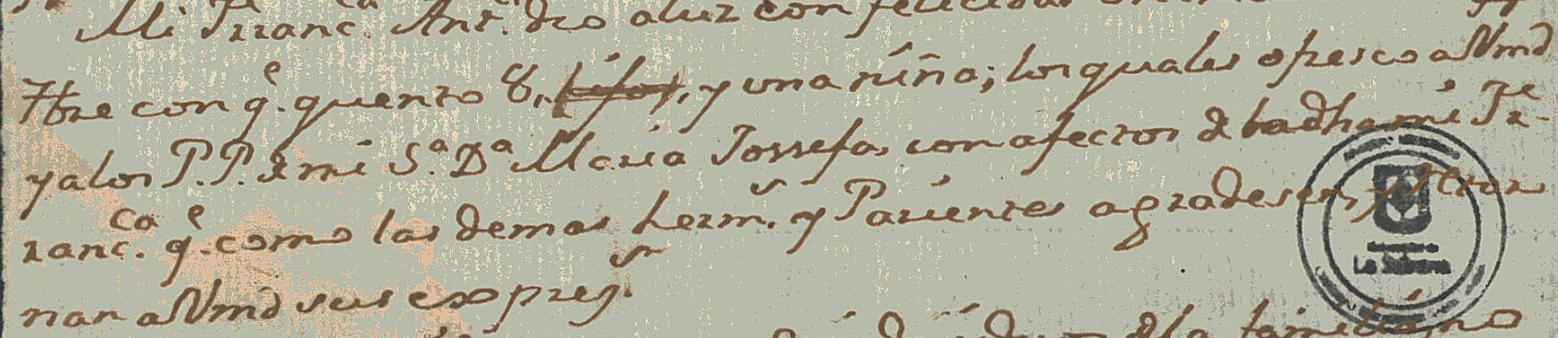 Mi Franc.ca Ant.a dio a luz con felicidad
7bre con q.e quento 8, hijos, y una niña; los quales ofresco a Vmd
y a los P.P. de mi S.a D.a Maria Jossefa, con afectos de badha mi Fr-
ranc.ca q.e como las demas herm.s y Parientes agradesen, y retor
nan a Vmd sus expres.s
de la familia, no
La Sabana